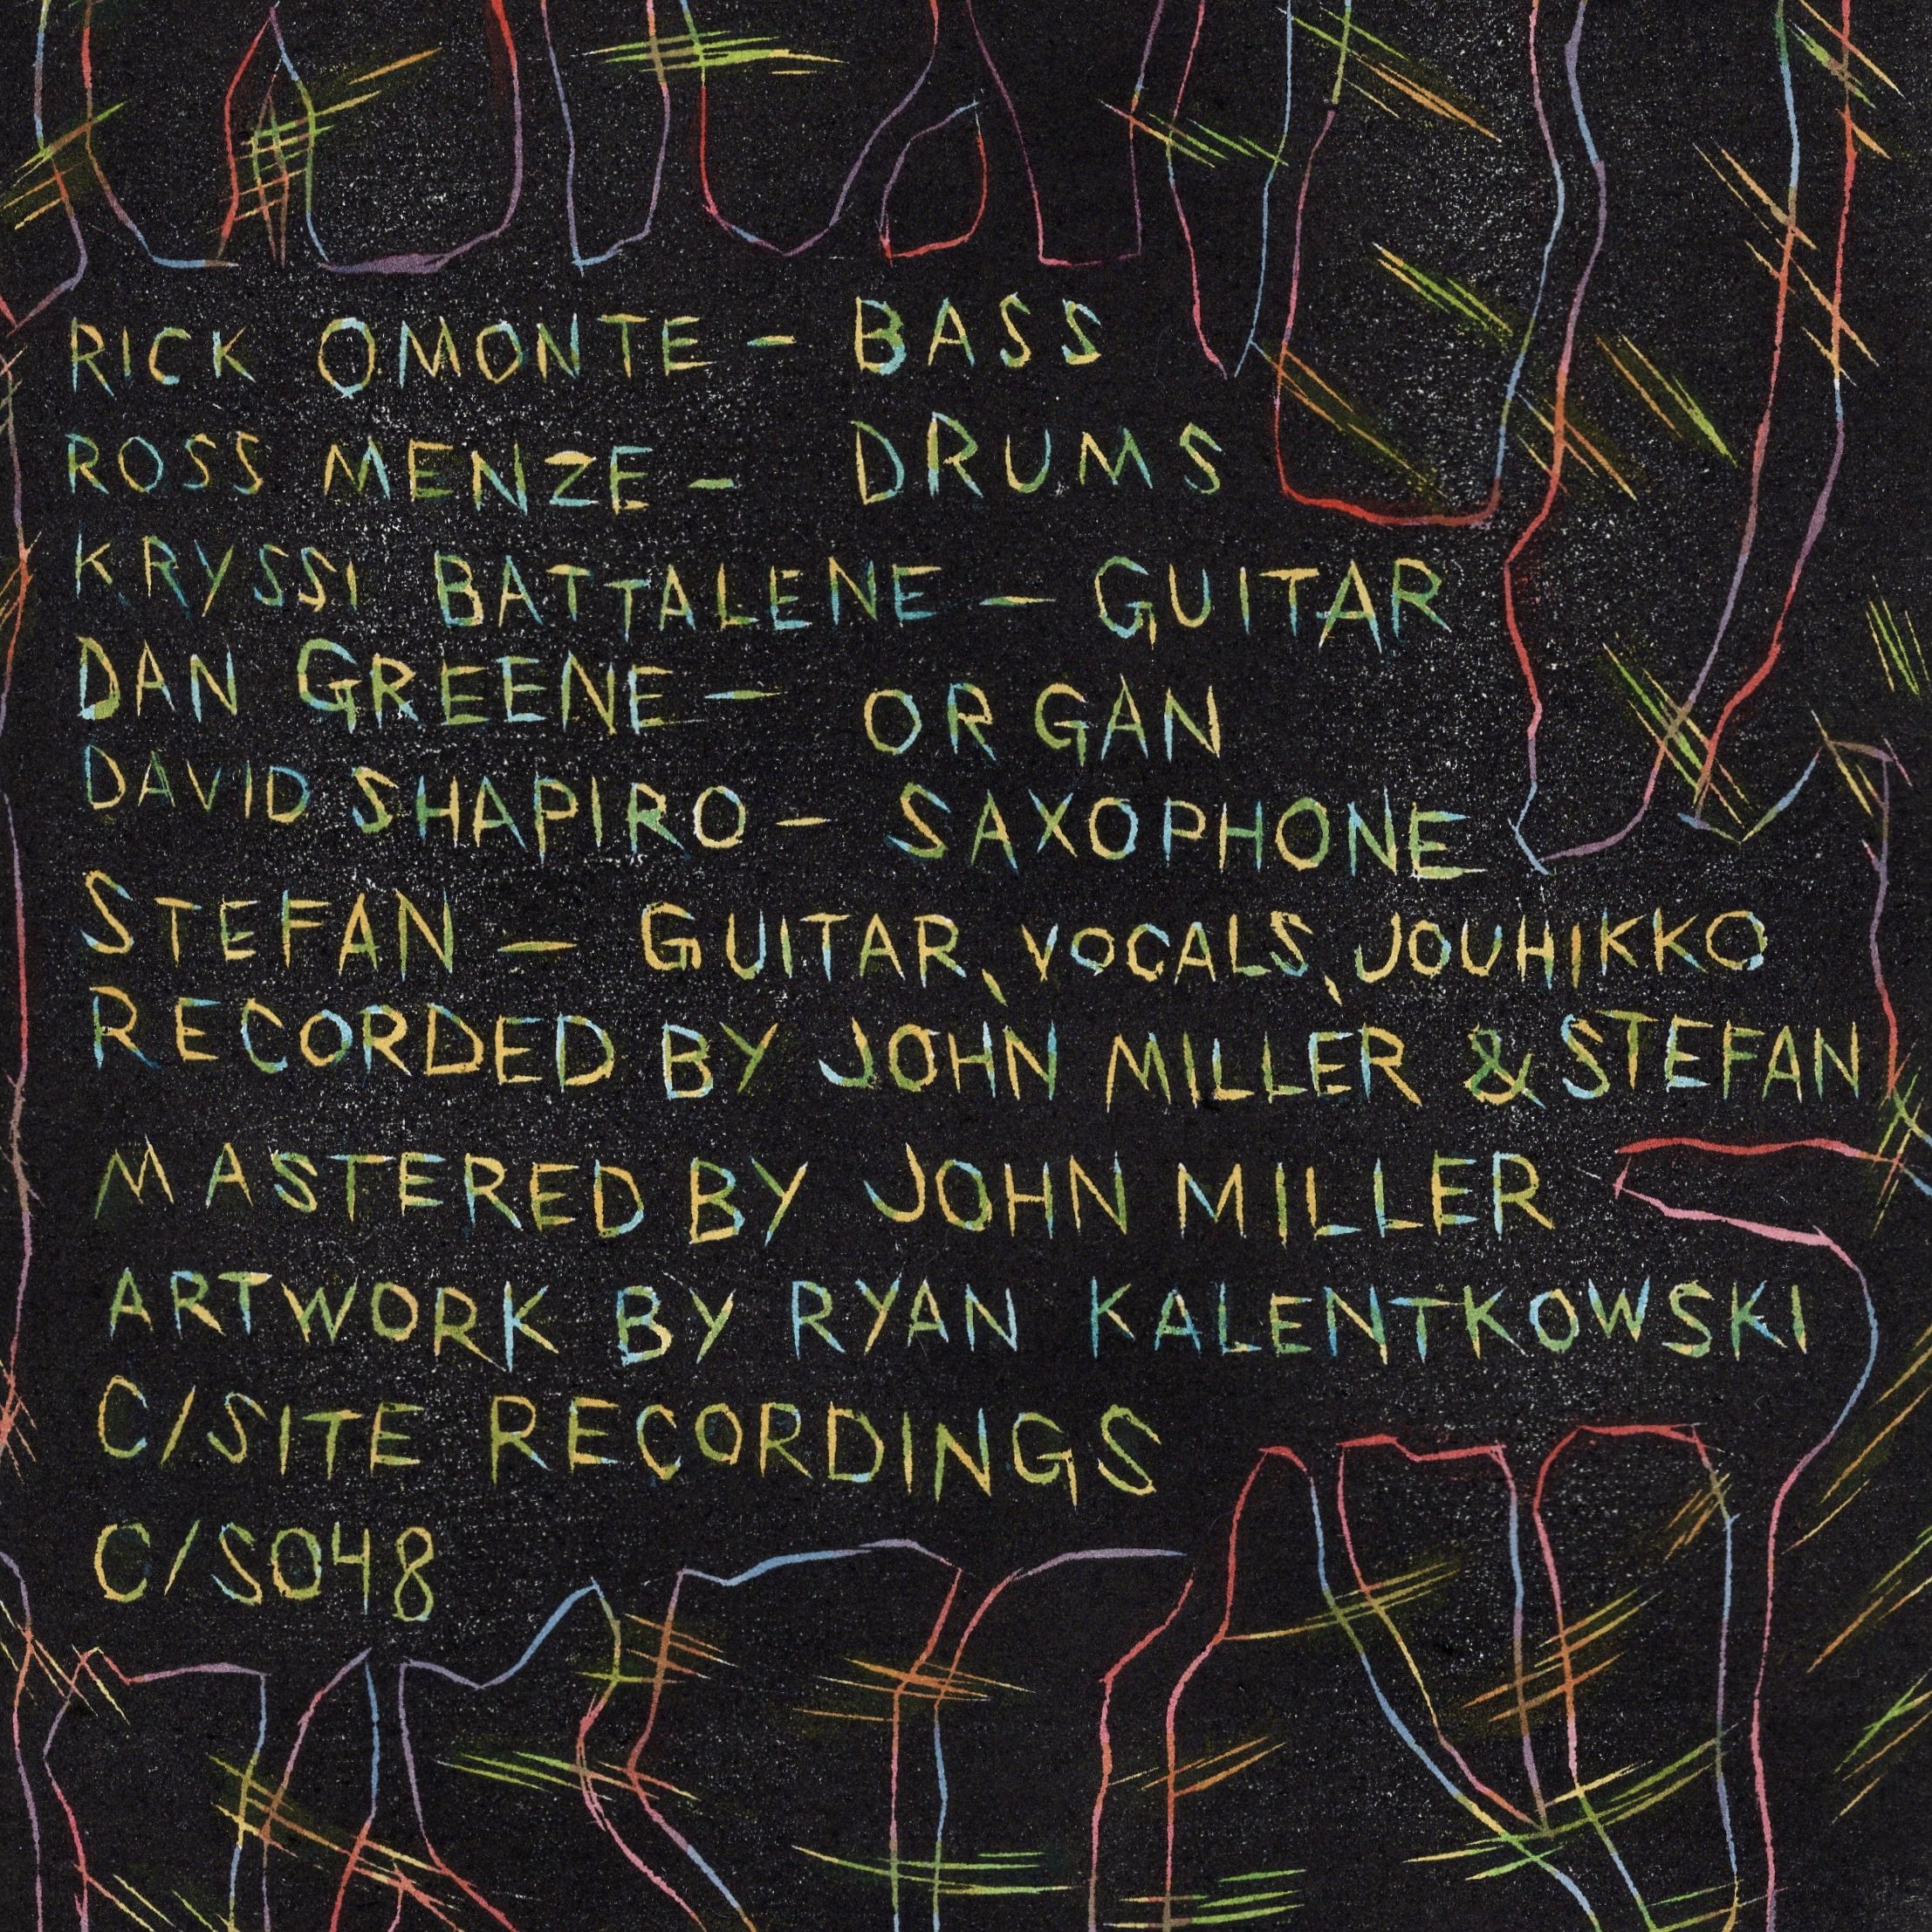 RICK OMONTE - BASS
ROSS MENZE - DRUMS
KRYSSI BATTALENE - GUITAR
DAN GREENE - ORGAN
DAVID SHAPIRO - SAXOPHONE
STEFAN - GUITAR, VOCALS, JOUHIKKO
RECORDED BY JOHN MILLER & STEFAN
MASTERED BY JOHN MILLER
ARTWORK BY RYAN KALENTKOWSKI
C/SITE RECORDINGS
C/S048